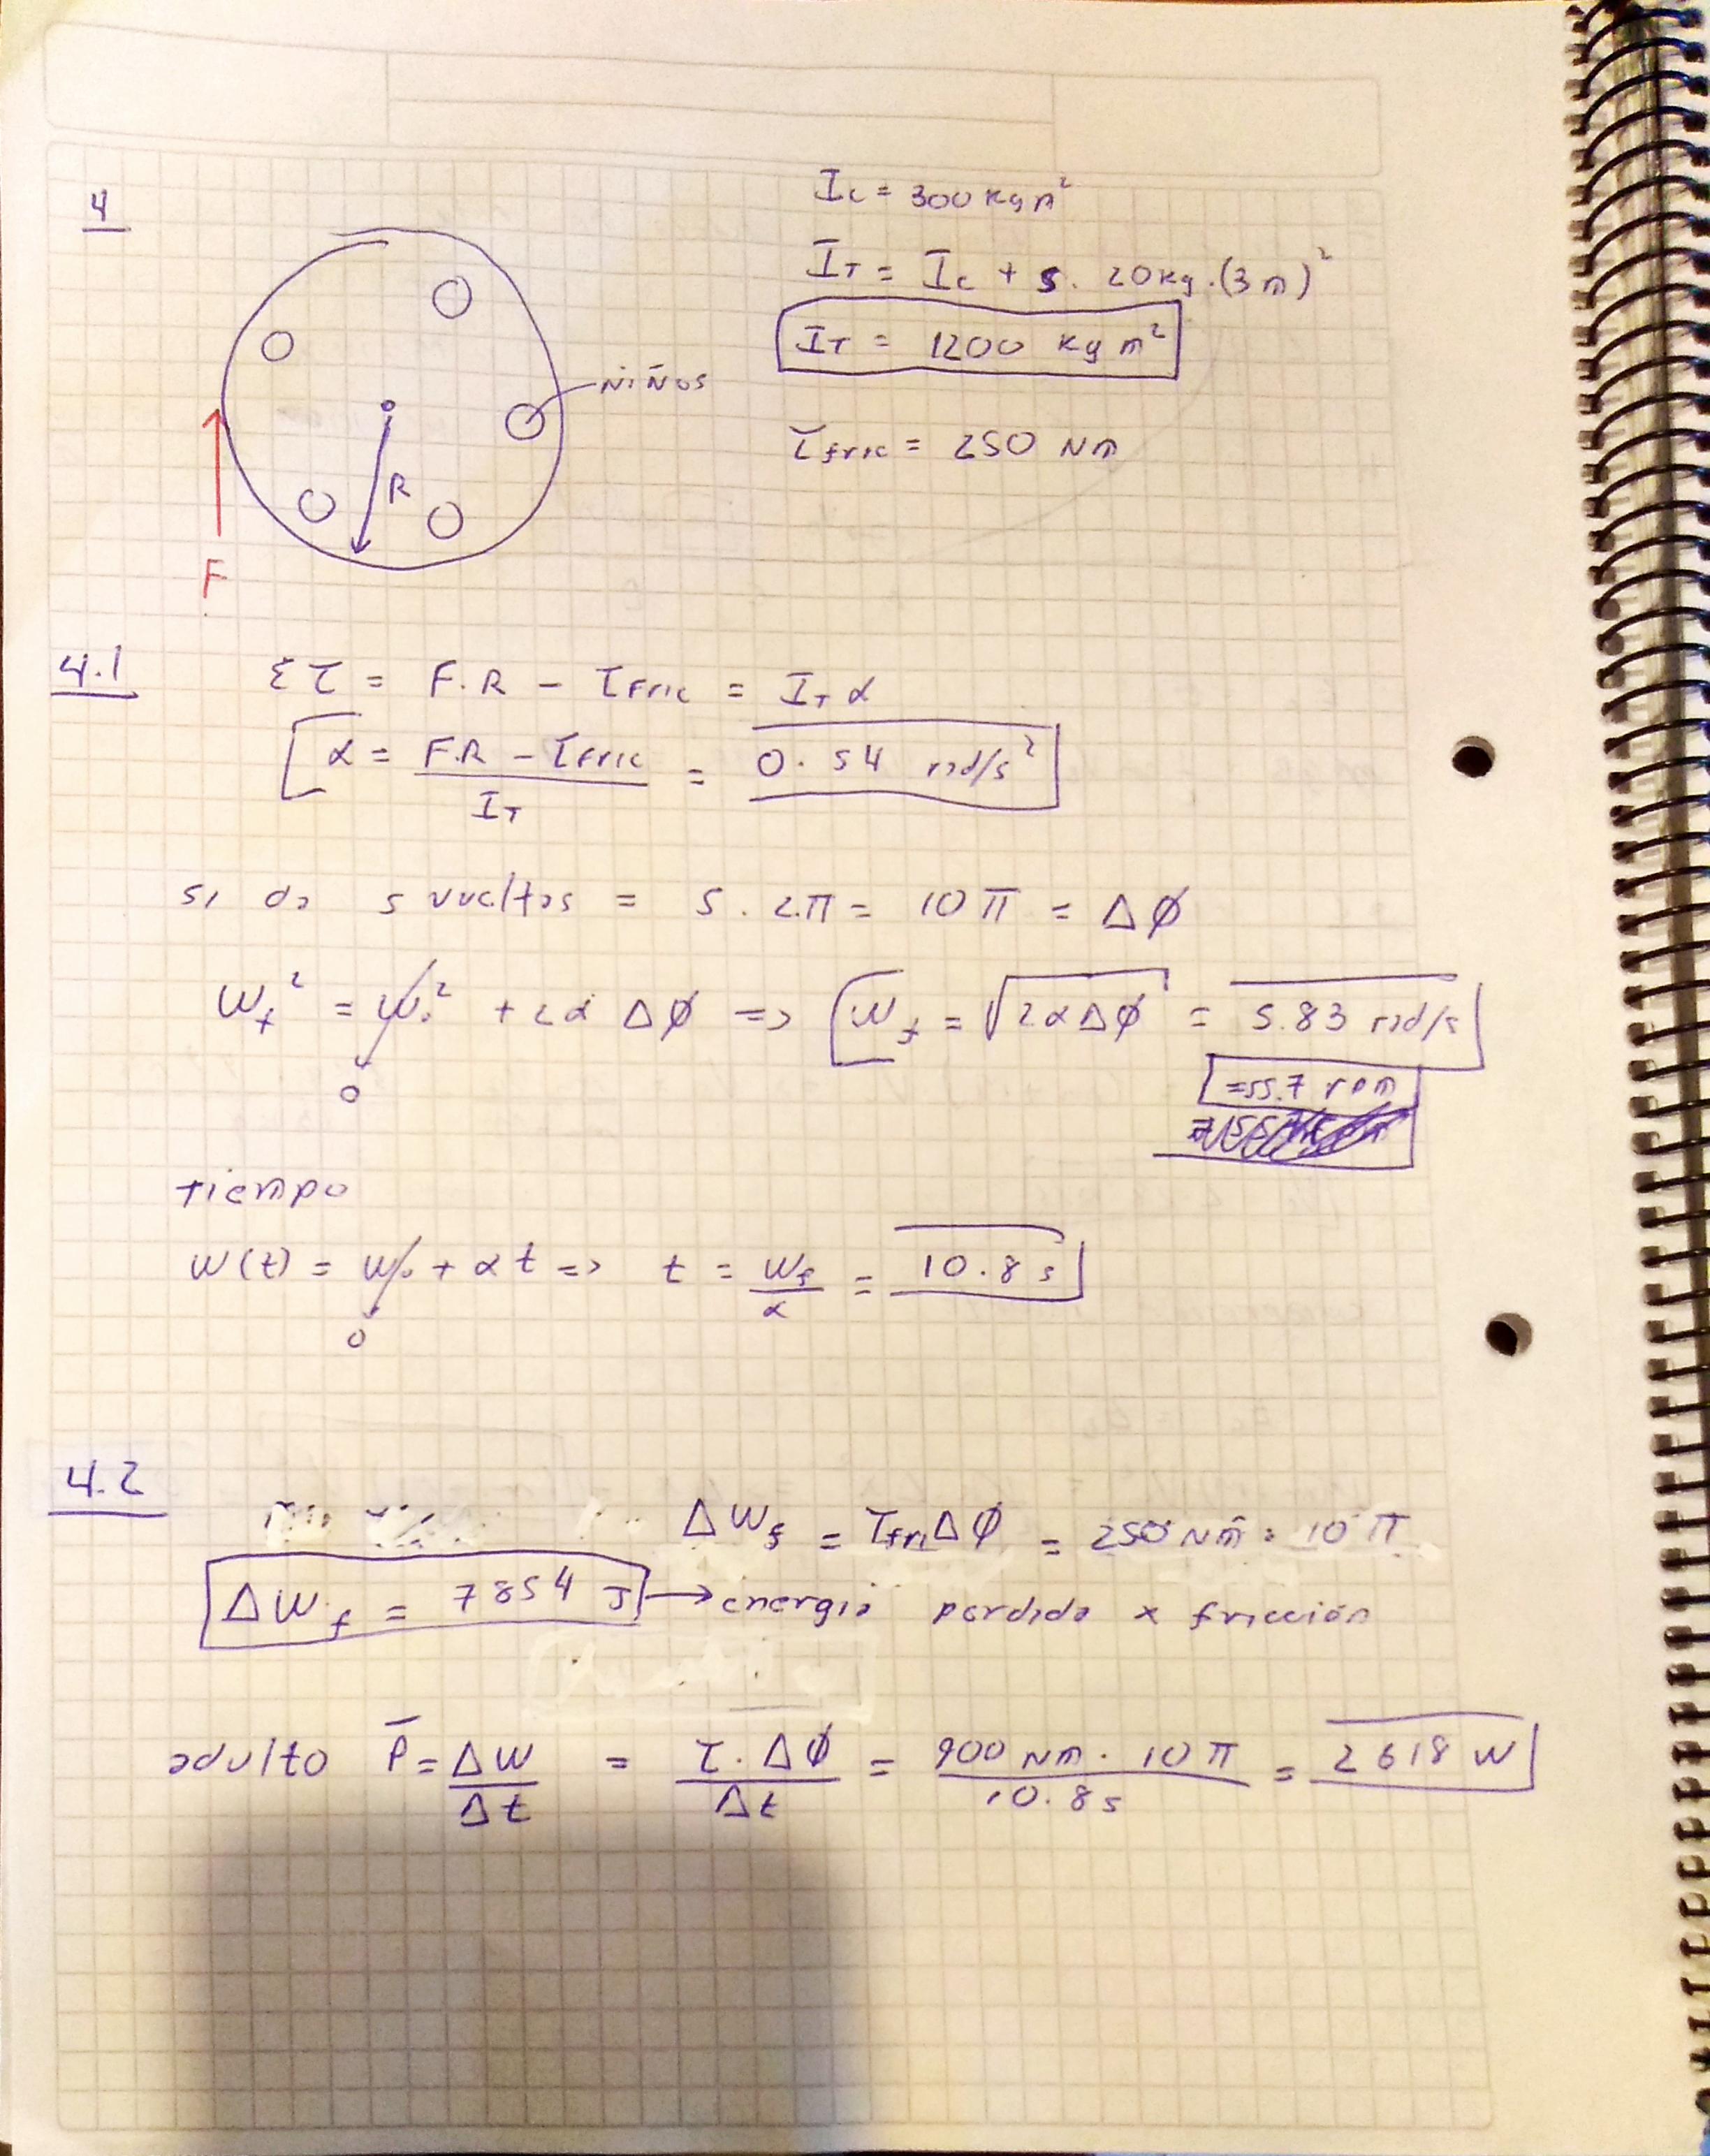 4
I_c = 300 kg m²
I_T = I_c + 5 . 20 kg . (3 m)²
I_T = 1200 kg m²
NiÑOS
τ_fric = 250 Nm
R
F
4.1
Στ = F.R - τ_fric = I_T α
α = F.R - τ_fric / I_T = 0.54 rad/s²
si da 5 vueltas = 5 . 2π = 10π = Δφ
ω_f² = ω_0² + 2α Δφ => ω_f = √2αΔφ = 5.83 rad/s
0
= 55.7 rpm
tiempo
ω(t) = ω_0 + αt => t = ω_f / α = 10.8 s
0
4.2
ΔW_f = τ_fri Δφ = 250 Nm . 10π
ΔW_f = 7854 J → energia perdida x fricción
adulto P̄ = ΔW / Δt = τ . Δφ / Δt = 900 Nm . 10π / 10.8 s = 2618 W